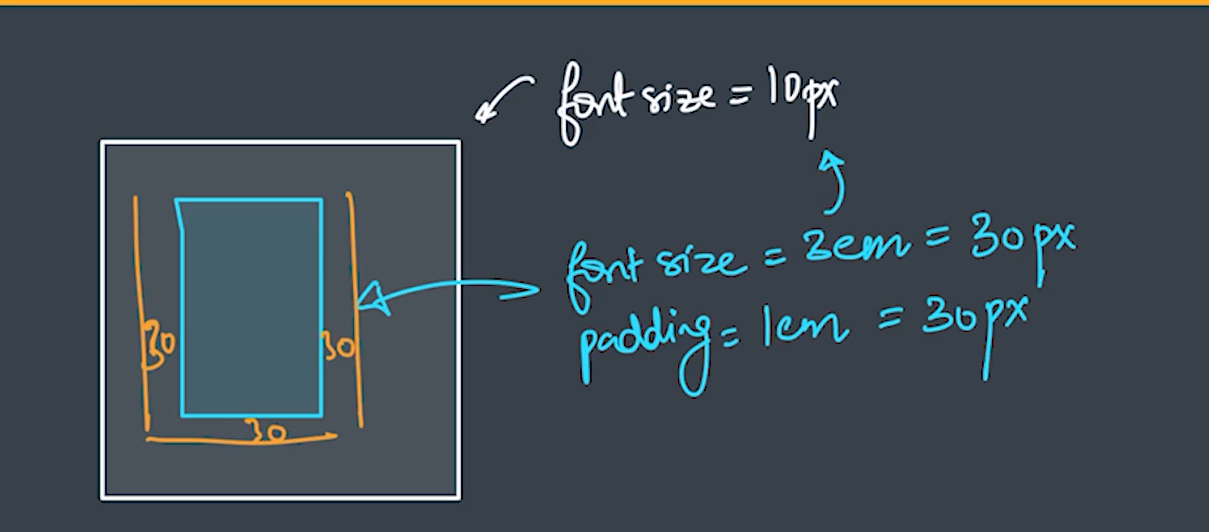 font size = 10px
font size = 3em = 30px
padding = 1em = 30px
30
30
30